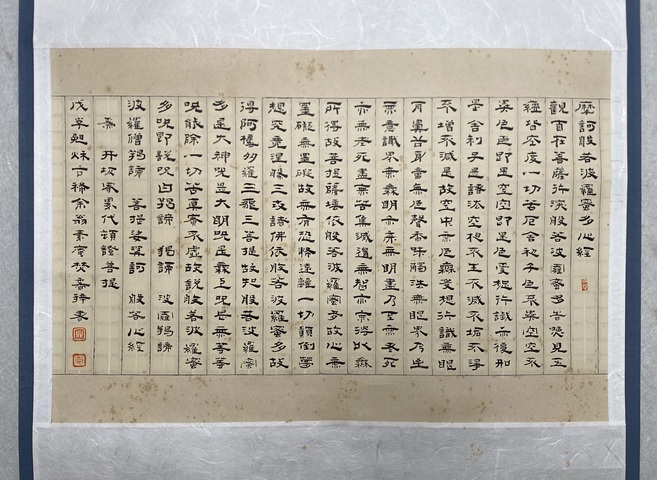 摩訶般若波羅蜜多心經
觀自在菩薩行深般若波羅蜜多時照見五
蘊皆空度一切苦厄舍利子色不異空空不
異色色即是空空即是色受想行識亦復如
是舍利子是諸法空相不生不滅不垢不淨
不增不減是故空中無色無受想行識無眼
耳鼻舌身意無色聲香味觸法無眼界乃至
無意識界無無明亦無無明盡乃至無老死
亦無老死盡無苦集滅道無智亦無得以無
所得故菩提薩埵依般若波羅蜜多故心無
罣礙無罣礙故無有恐怖遠離一切顛倒夢
想究竟涅槃三世諸佛依般若波羅蜜多故
得阿耨多羅三藐三菩提故知般若波羅蜜
多是大神咒是大明咒是無上咒是無等等
咒能除一切苦真實不虛故說般若波羅蜜
多咒即說咒曰揭諦 揭諦 波羅揭諦
波羅僧揭諦 菩提娑婆訶 般若心經
為 切冤家代頓證菩提
戊 古稀余翁素庵焚香拜書